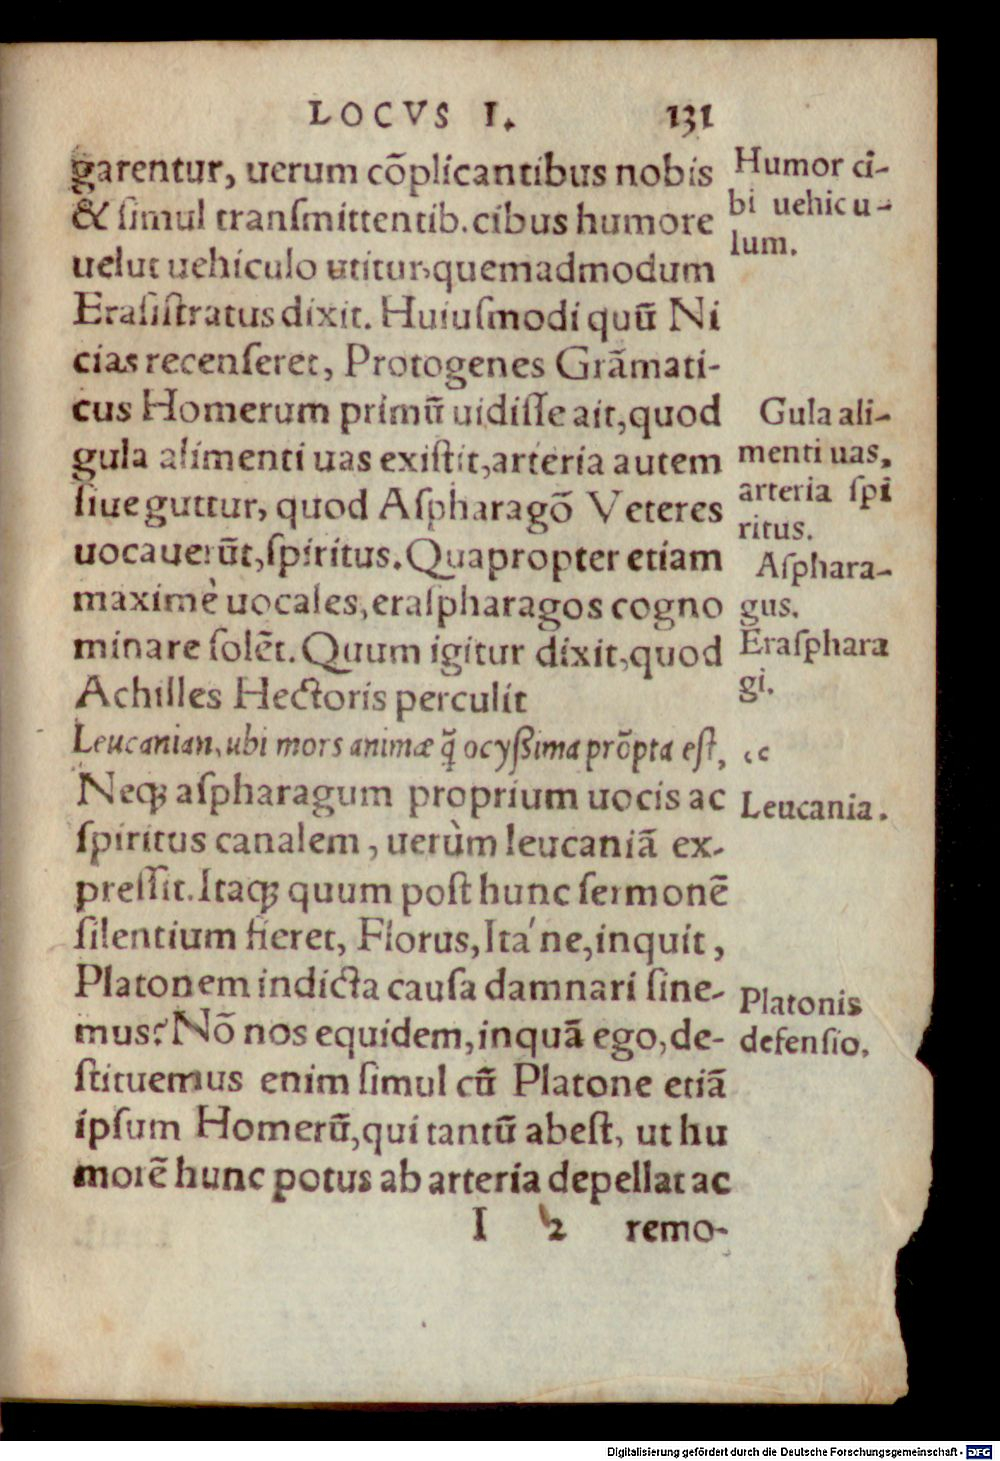 LOCVS I. 131
garentur, uerum cõplicantibus nobis
& simul transmittentib. cibus humore
uelut uehiculo utitur, quemadmodum
Erasistratus dixit. Huiusmodi quũ Ni
cias recenseret, Protogenes Grãmati-
cus Homerum primũ uidisse ait, quod
gula alimenti uas existit, arteria autem
siue guttur, quod Aspharagõ Veteres
uocauerũt, spiritus. Quapropter etiam
maximè uocales, eraspharagos cogno
minare solẽt. Quum igitur dixit, quod
Achilles Hectoris perculit
Leucanian, ubi mors animæ q̃ ocyßima prõpta est,
Neqꝫ aspharagum proprium uocis ac
spiritus canalem, uerùm leucaniã ex-
pressit. Itaqꝫ quum post hunc sermonẽ
silentium fieret, Florus, Ita´ne, inquit,
Platonem indicta causa damnari sine-
mus? Nõ nos equidem, inquã ego, de-
stituemus enim simul cũ Platone etiã
ipsum Homerũ, qui tantũ abest, ut hu
morẽ hunc potus ab arteria depellat ac
I 2 remo-
Humor ci-
bi uehicu-
lum.
Gula ali-
menti uas,
arteria spi
ritus.
Asphara-
gus.
Erasphara
gi.
‹‹
Leucania.
Platonis
defensio.
Digitalisierung gefördert durch die Deutsche Forschungsgemeinschaft - DFG